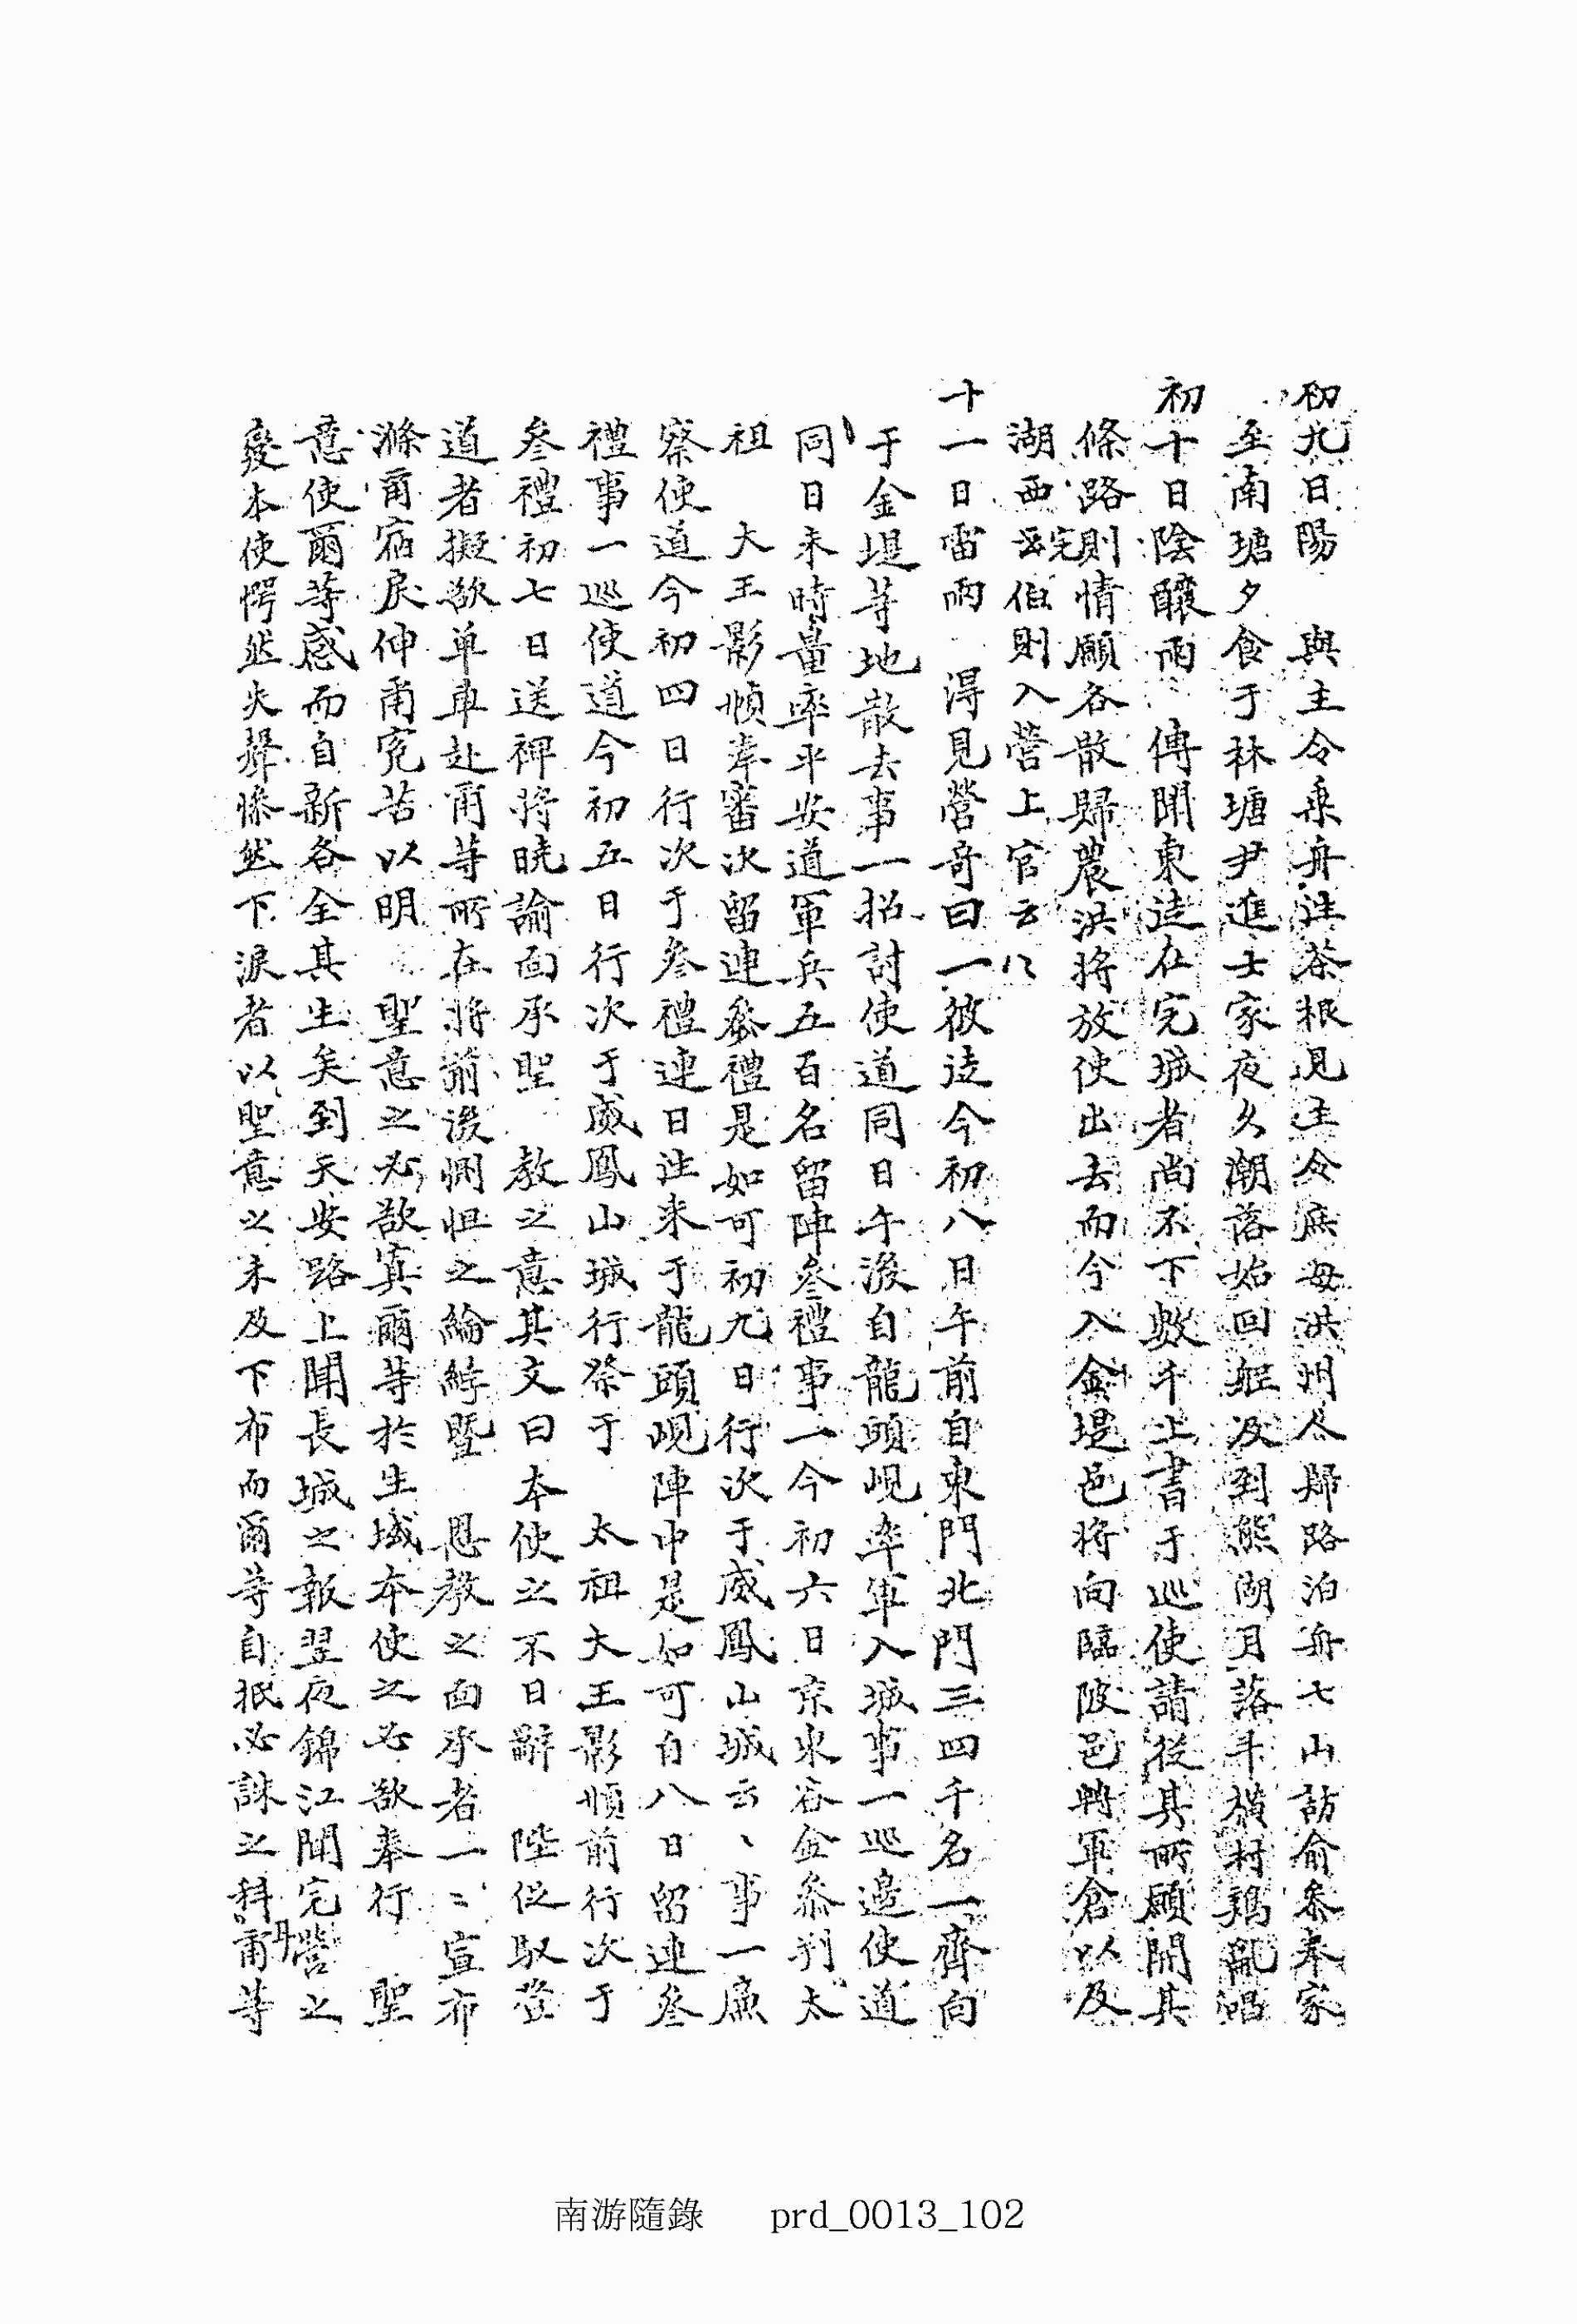 初九日陽 與主令乘舟往茶根見主令庶母洪州人歸路泊舟七山訪俞參奉家
至南塘夕食于林塘尹進士家夜久潮落始回船及到熊湖月落斗橫村鷄亂唱
初十日陰釀雨 傳聞東徒在完城者尚不下數千上書于巡使請從其所願開其
條路則情願各散歸農洪將放使出去而今入金堤邑將向臨陂邑轉軍倉以及
湖西云完伯則入營上官云〻
十一日雷雨 淂見營奇曰一彼徒今初八日午前自東門北門三四千名一齊向
于金堤等地散去事一招討使道同日午後自龍頭峴率軍入城事一巡邊使道
同日未時量率平安道軍兵五百名留陣參禮事一今初六日京來谷金參判太
祖 大王影幀奉審次留連參禮是如可初九日行次于威鳳山城云〻事一廉
察使道今初四日行次于參禮連日往來于龍頭峴陣中是如可自八日留連參
禮事一巡使道今初五日行次于威鳳山城行祭于 太祖大王影幀前行次于
參禮初七日送裨將曉諭面承聖 教之意其文曰本使之不日辭 陛促馭登
道者擬欲单車赴爾等所在將前後惻怛之綸綍曁 恩教之面承者一〻宣布
滌爾宿戾伸爾寃苦以明 聖意之必欲寘爾等於生域本使之必欲奉行 聖
意使爾等感而自新各全其生矣到天安路上聞長城之報翌夜錦江聞完營之
變本使愕然失聲慘然下淚者以聖意之未及下布而爾等自抵必誅之科爾等
南游隨錄 prd_0013_102